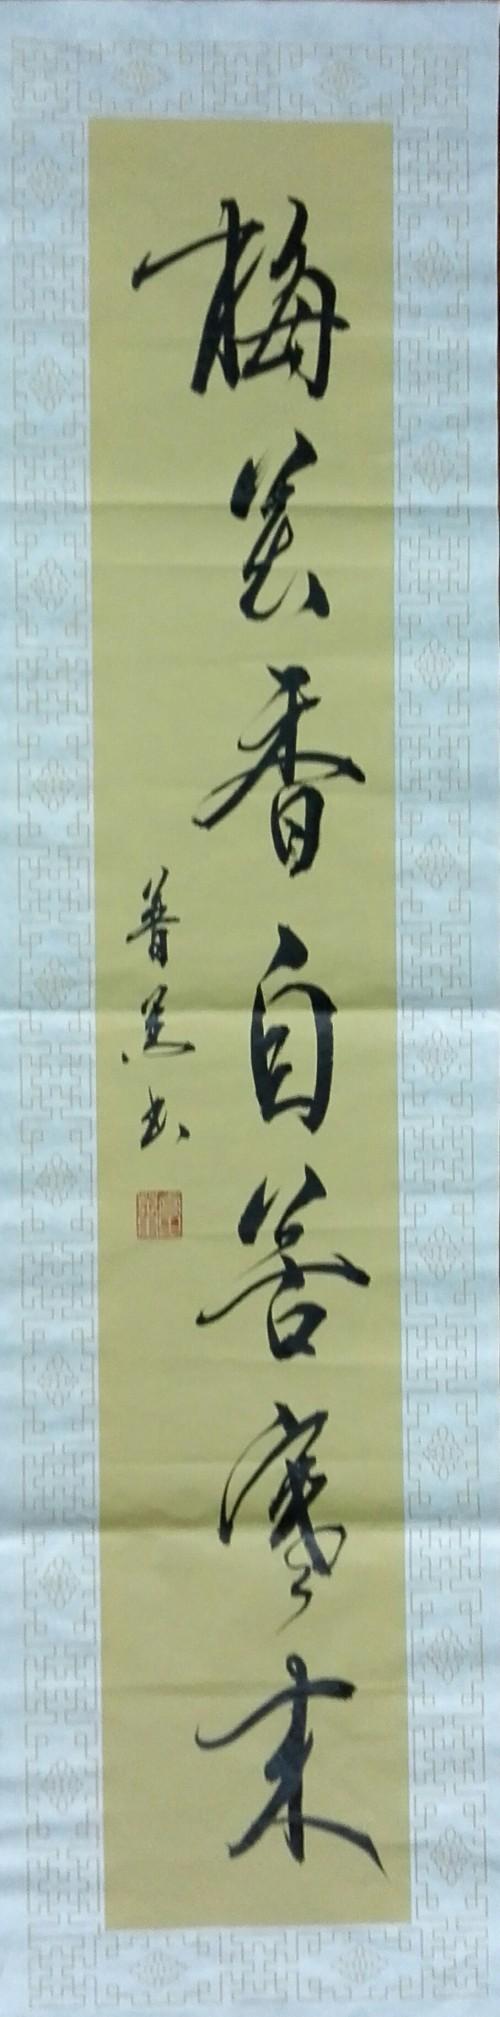 梅花香自苦寒来
普美书